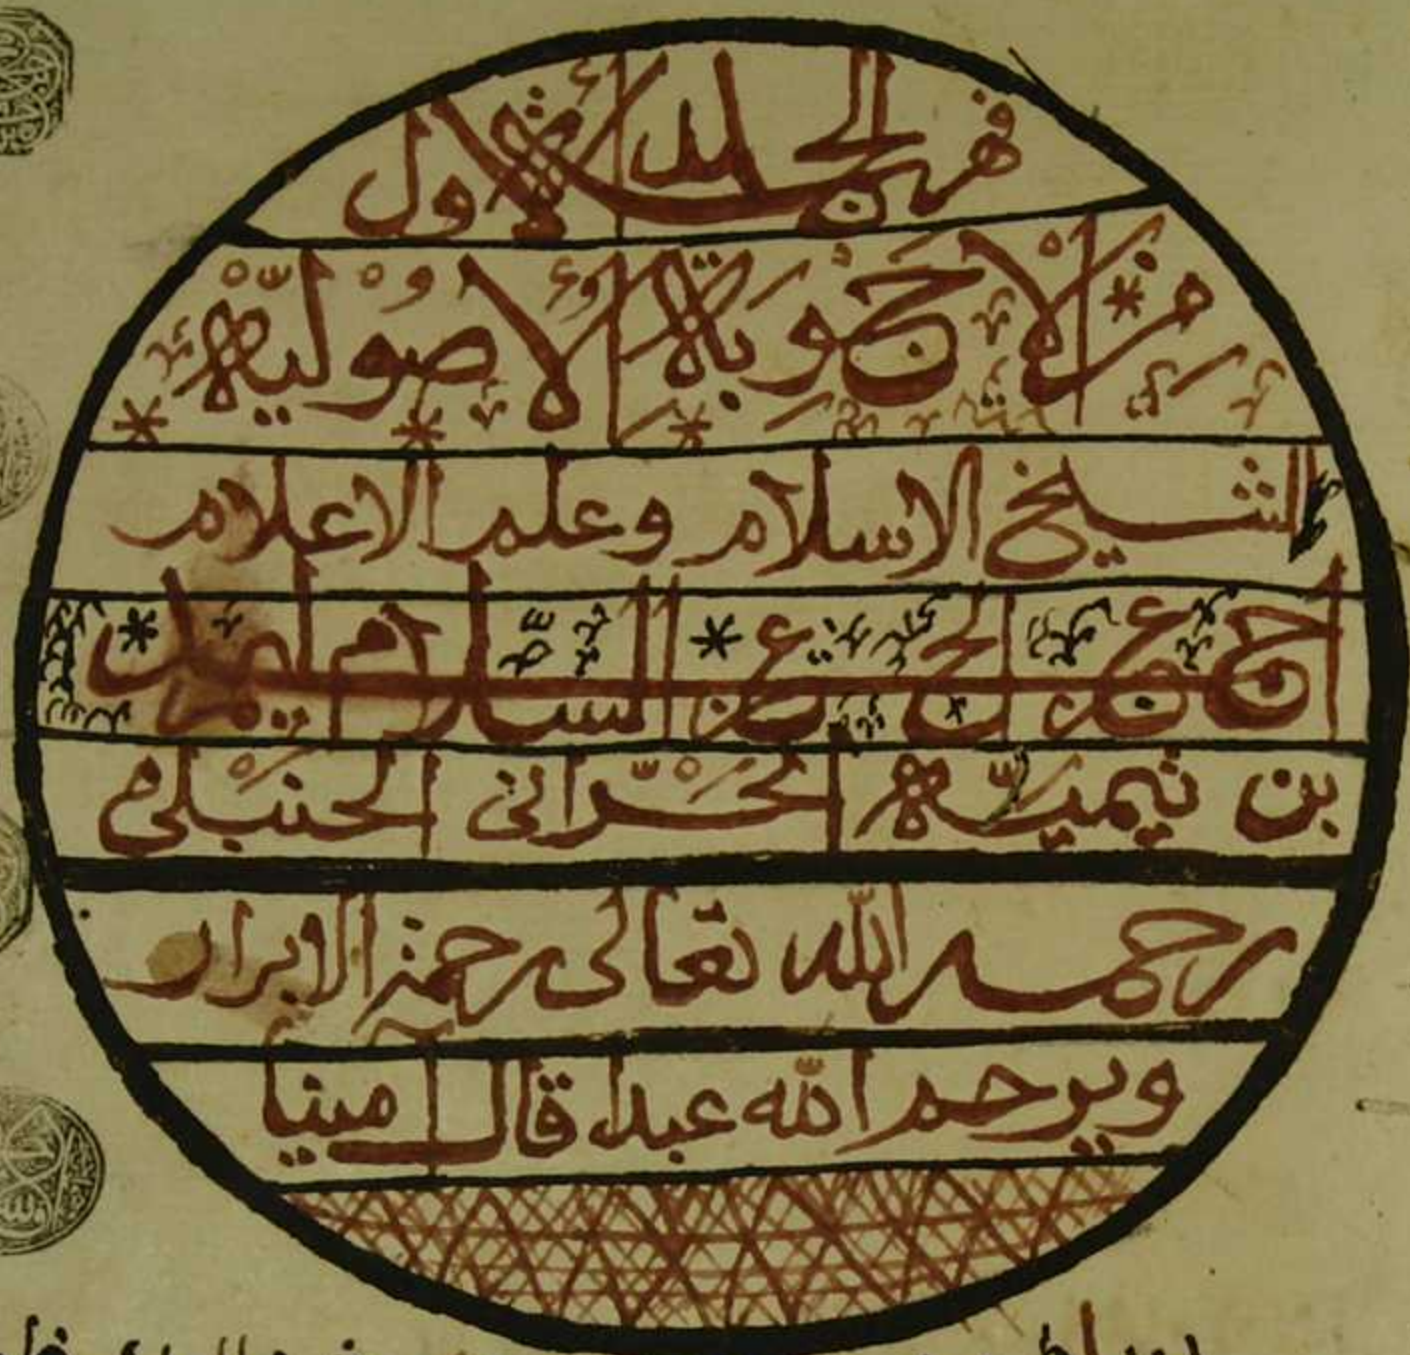 المجلد الاول
من الاجوبة الاصولية
لشيخ الاسلام وعلم الاعلام
السلام
بن تيميه الحرّاني الحنبلي
رحمه الله تعالى رحمة الابرار
ويرحم الله عبدا قال امينا